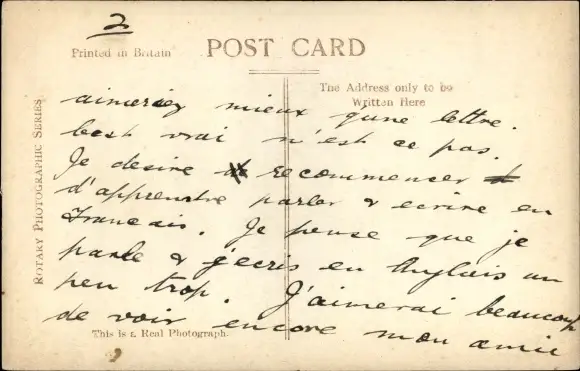 2
Printed in Britain
POST CARD
The Address only to be
Written Here
ROTARY PHOTOGRAPHIC SERIES
aimeriez mieux qune lettre.
best vrai n'est ce pas.
Je desire recommencer
d'apprendre parler & ecrire en
Francais. Je pense que je
parle & j'ecris en Anglais un
peu trop. J'aimerai beaucoup
de voir encore mon amie
This is a Real Photograph.